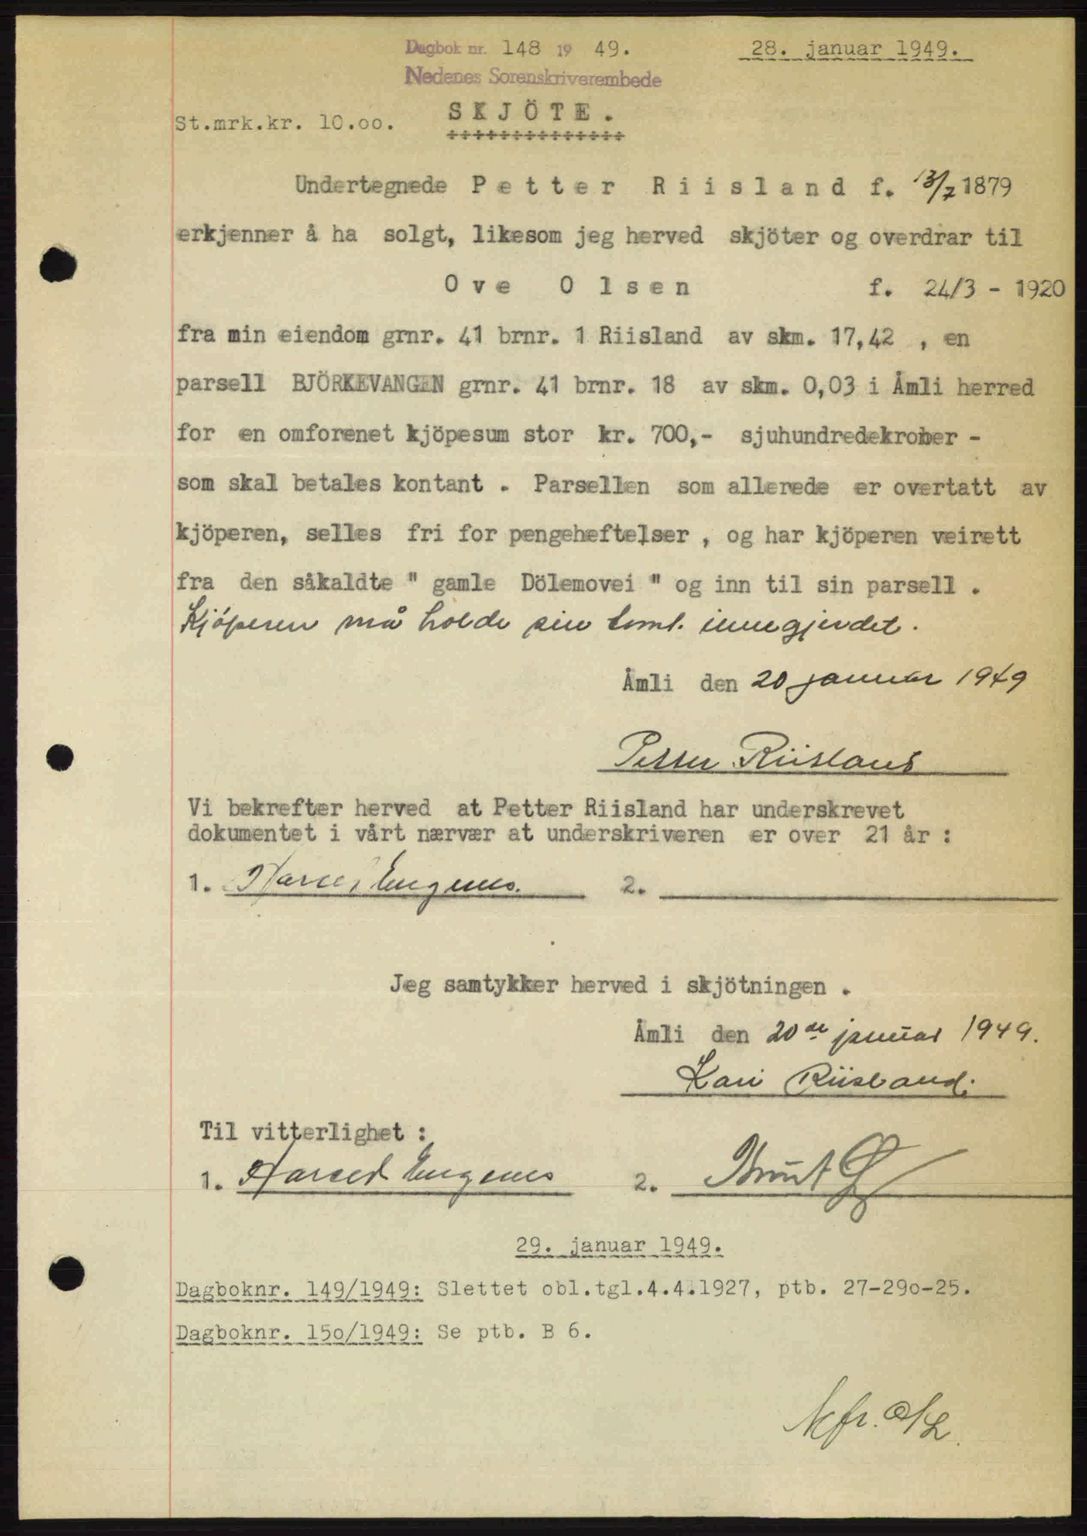 Dagbok nr. 148 19 49. 28. januar 1949.
Nedenes Sorenskriverembede
St.mrk.kr. 10.oo. SKJÖTE.
Undertegnede Petter Riisland f. 13/7 1879
erkjenner å ha solgt, likesom jeg herved skjöter og overdrar til
Ove Olsen f. 24/3 - 1920
fra min eiendom grnr. 41 brnr. 1 Riisland av skm. 17,42 , en
parsell BJÖRKEVANGEN grnr. 41 brnr. 18 av skm. 0,03 i Åmli herred
for en omforenet kjöpesum stor kr. 700,- sjuhundredekroner -
som skal betales kontant . Parsellen som allerede er overtatt av
kjöperen, selles fri for pengeheftelser , og har kjöperen veirett
fra den såkaldte " gamle Dölemovei " og inn til sin parsell .
Kjöperen må holde sin tomt. innegjerdet.
Åmli den 20 januar 1949
Petter Riisland
Vi bekrefter herved at Petter Riisland har underskrevet
dokumentet i vårt nærvær at underskriveren er over 21 år :
1. 2.
Jeg samtykker herved i skjötningen .
Åmli den 20de januar 1949.
Kari Riisland.
Til vitterlighet :
1. 2.
29. januar 1949.
Dagboknr. 149/1949: Slettet obl.tgl.4.4.1927, ptb. 27-29o-25.
Dagboknr. 15o/1949: Se ptb. B 6.